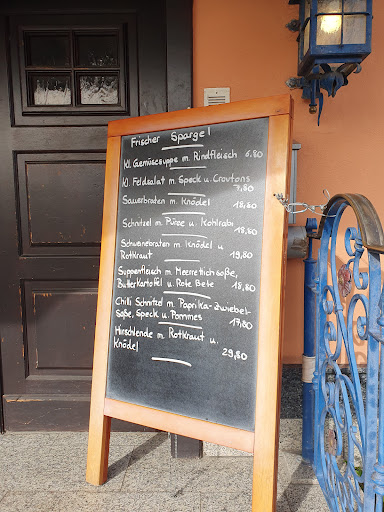 Frischer Spargel
Kl. Gemüsesuppe m. Rindfleisch 6,80
Kl. Feldsalat m. Speck u. Croutons
7,80
Sauerbraten m. Knödel 18,80
Schnitzel m. Püree u. Kohlrabi
18,80
Schweinebraten m. Knödel u.
Rotkraut 19,80
Suppenfleisch m. Meerrettichsoße,
Butterkartoffel u. Rote Bete 18,80
Chilli Schnitzel m. Paprika-Zwiebel-
Soße, Speck u. Pommes 17,80
Hirschlende m. Rotkraut u.
Knödel 29,80